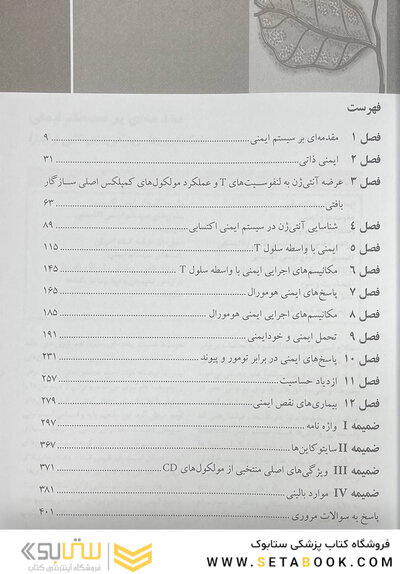 فهرست
فصل ۱ مقدمه‌ای بر سیستم ایمنی ۹
فصل ۲ ایمنی ذاتی ۳۱
فصل ۳ عرضه آنتی‌ژن به لنفوسیت‌های T و عملکرد مولکول‌های کمپلکس اصلی سازگار
بافتی ۶۳
فصل ۴ شناسایی آنتی‌ژن در سیستم ایمنی اکتسابی ۸۹
فصل ۵ ایمنی با واسطه سلول T ۱۱۵
فصل ۶ مکانیسم‌های اجرایی ایمنی با واسطه سلول T ۱۴۵
فصل ۷ پاسخ‌های ایمنی هومورال ۱۶۵
فصل ۸ مکانیسم‌های اجرایی ایمنی هومورال ۱۸۵
فصل ۹ تحمل ایمنی و خودایمنی ۱۹۱
فصل ۱۰ پاسخ‌های ایمنی در برابر تومور و پیوند ۲۳۱
فصل ۱۱ ازدیاد حساسیت ۲۵۷
فصل ۱۲ بیماری‌های نقص ایمنی ۲۷۹
ضمیمه I واژه نامه ۲۹۷
ضمیمه II سایتوکاین‌ها ۳۶۷
ضمیمه III ویژگی‌های اصلی منتخبی از مولکول‌های CD ۳۷۱
ضمیمه IV موارد بالینی ۳۸۱
پاسخ به سوالات مروری ۴۰۱
فروشگاه کتاب پزشکی ستابوک
WWW.SETABOOK.COM
ستابوک
فروشگاه اینترنتی کتاب